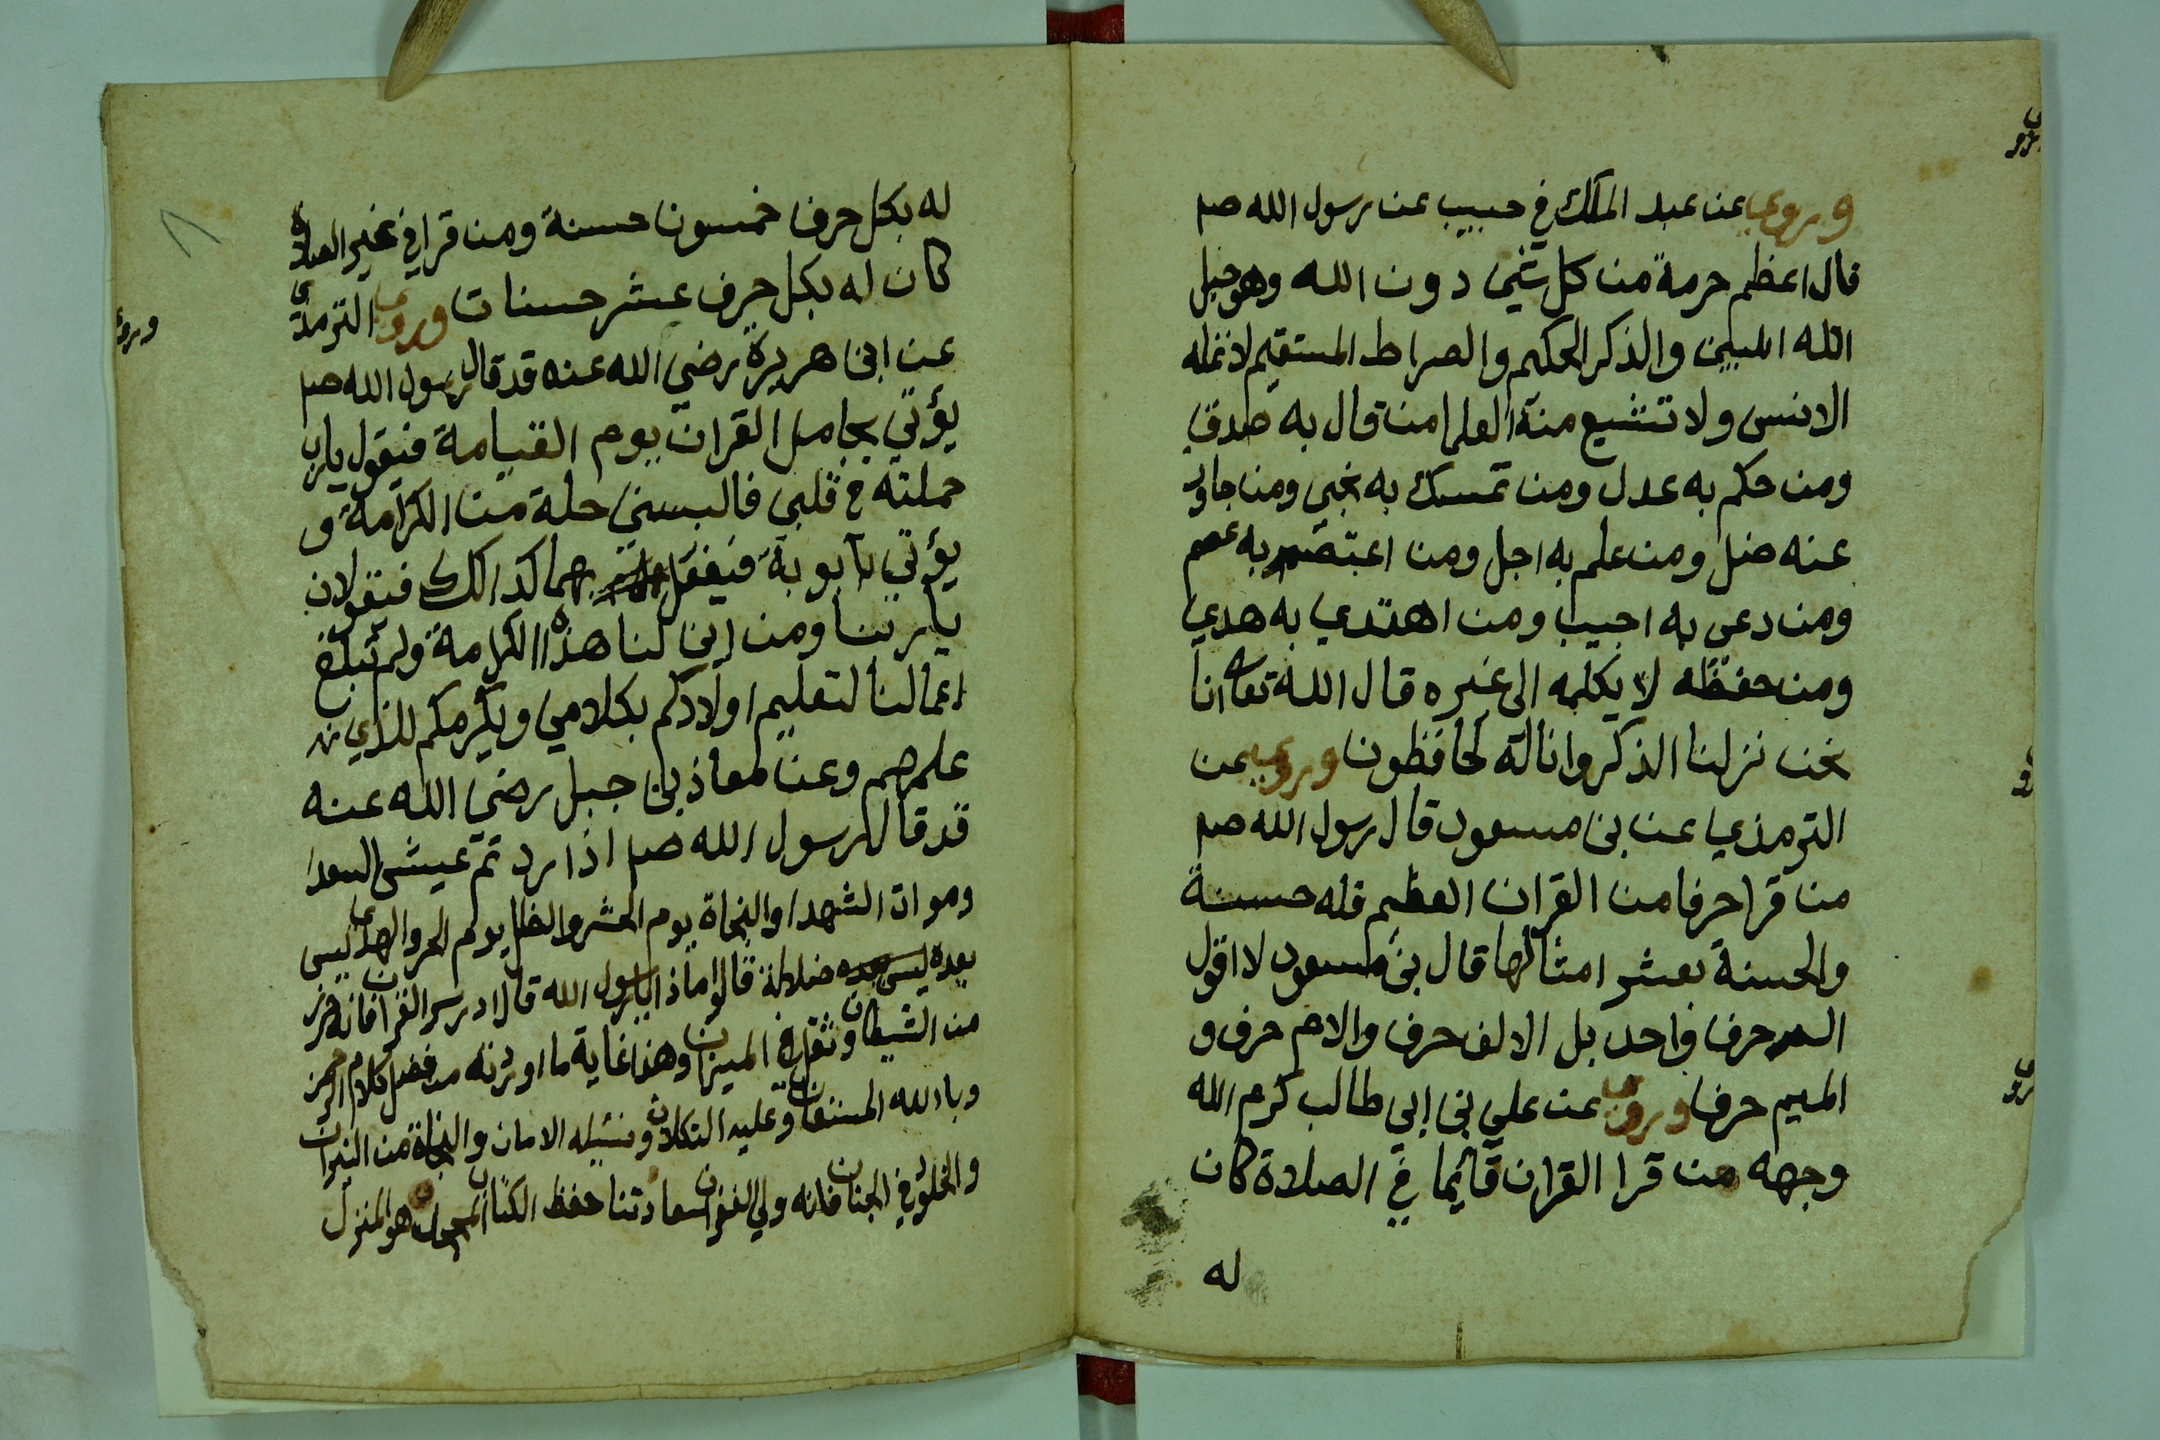 وروي عن عبد الملك في حبيب عن رسول الله صم
قال اعظم حرمة من كل شي دون الله وهو حبل
الله المبين والذكر الحكيم والصراط المستقيم لا تمله
الانس ولا تشبع منه العلما من قال به صدق
ومن حكم به عدل ومن تمسك به نجي ومن جاوز
عنه ضل ومن علم به اجل ومن اعتصم به عصم
ومن دعى به اجيب ومن اهتدي به هدي
ومن حفظه لا يكلمه الى غيره قال الله تعالى انا
نحن نزلنا الذكر وانا له لحافظون وروي عن
الترمذي عن بن مسعود قال رسول الله صم
من قرا حرفا من القران العظيم فله حسنة
والحسنة بعشر امثالها قال بن مسعود لا اقول
الم حرف واحد بل الالف حرف والام حرف و
الميم حرف وروي عن علي بن ابي طالب كرم الله
وجهه من قرا القران قائما في الصلاة كان
له
له بكل حرف خمسون حسنة ومن قرا في غير الصلاة
كان له بكل حرف عشر حسنات وروي الترمذي
عن ابي هريرة رضي الله عنه قد قال رسول الله صم
يؤتي بحامل القران يوم القيامة فيقول يارب
حملته في قلبي فالبسني حلة من الكرامة و
يؤتي بآبويه فيفعل بهما كذالك فيقولان
يا ربنا ومن اين لنا هذه الكرامة ولم تبلغ
اعمالنا لتعليم اولادكم بكلامي ويكرمكم للذي
علمهم وعن معاذ بن جبل رضي الله عنه
قد قال رسول الله صم اذا اردتم عيش السعدا
وموات الشهدا والنجاة يوم الحشر والظل يوم الحر والهدي ليس
بعده ضلالة قالوا ماذا يا رسول الله قال ادرس القران فانه حرز
من الشيطان وثقل في الميزان وهذا غاية ما اوردته من فضل كلام الرحمن
وبالله المستعان وعليه التكلان ونسئله الامان والنجاة من النيران
والخلود في الجنان فانه ولي الغفران سعادتنا حفظ الكتاب هو المنزل
وروي